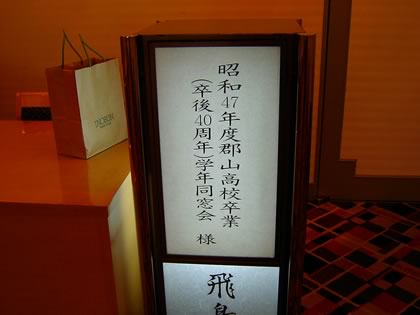 昭和47年度郡山高校卒業
(卒後40周年)学年同窓会 様
飛鳥